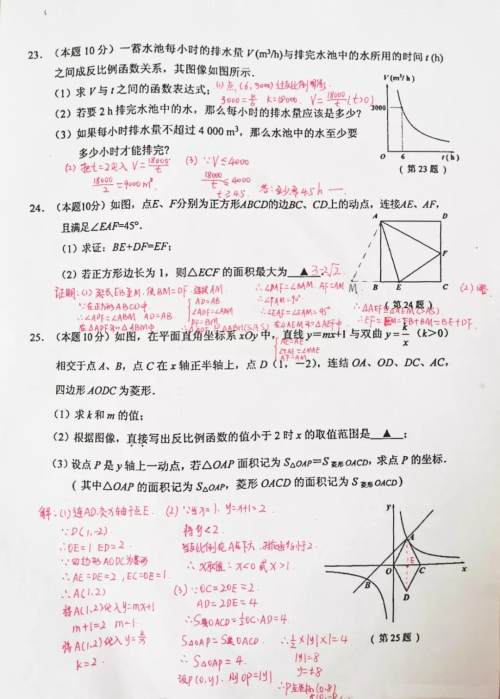 23. (本题 10 分) 一蓄水池每小时的排水量 V (m³/h)与排完水池中的水所用的时间 t (h)
之间成反比例函数关系,其图像如图所示.
(1) 求 V 与 t 之间的函数表达式;
(2) 若要 2 h 排完水池中的水,那么每小时的排水量应该是多少?
(3) 如果每小时排水量不超过 4 000 m³,那么水池中的水至少要
多少小时才能排完?
3000=k/6 k=18000. V=18000/t (t>0)
(2) 把t=2代入 V=18000/t
18000/2=9000m³.
(3) ∵V≤4000
18000/t≤4000
t≥4.5
V(m³/h)
3000
O 6 t(h)
(第 23 题)
24. (本题10分) 如图,点E、F分别为正方形ABCD的边BC、CD上的动点,连接AE、AF,
且满足∠EAF=45°.
(1) 求证:BE+DF=EF;
(2) 若正方形边长为 1,则△ECF 的面积最大为 ▲ 3-2√2.
A D
F
M B E C
(第 24 题)
(2) 略
证明:(1) 延长EB至M,使BM=DF.连接AM
∵在正方形ABCD中
∴∠ADF=∠ABM AD=AB
在△ADF与△ABM中
AD=AB
∠ADF=∠ABM
DF=BM
∴∠DAF=∠BAM, AF=AM
∴∠FAM=90°
∴∠EAF=∠EAM=45°
在△AEM与△AEF中
AE=AE
∠EAM=∠EAF
AF=AM
∴△AEF≌△AEM(SAS)
∴EF=EM=EB+BM=BE+DF.
25. (本题 10 分) 如图,在平面直角坐标系 xOy 中,直线 y=mx+1 与双曲 y=k/x (k>0)
相交于点 A、B,点 C 在 x 轴正半轴上,点 D (1,-2),连结 OA、OD、DC、AC,
四边形 AODC 为菱形.
(1) 求 k 和 m 的值;
(2) 根据图像,直接写出反比例函数的值小于 2 时 x 的取值范围是 ▲ ;
(3) 设点 P 是 y 轴上一动点,若△OAP 面积记为 S△OAP=S菱形OACD,求点 P 的坐标.
(其中△OAP 的面积记为 S△OAP,菱形 OACD 的面积记为 S菱形OACD)
解:(1)连AD,交x轴于点E.
∵D(1,-2)
∴OE=1 ED=2.
∵四边形AODC为菱形
∴AE=DE=2,EC=OE=1.
∴A(1,2)
将A(1,2)代入y=mx+1
m+1=2 m=1.
将A(1,2)代入y=k/x
k=2.
(2) ∵当x=1, y=x+1=2.
∴x取值:x<0或x>1.
(3) ∵OC=2OE=2
AD=2DE=4
∴S菱OACD=½OC·AD=4.
S△OAP=S菱OACD
∴S△OAP=4.
设P(0,y),则OP=|y|
∴½×|y|×1=4
|y|=8
y=±8
y
A
O E C x
B
D
(第 25 题)